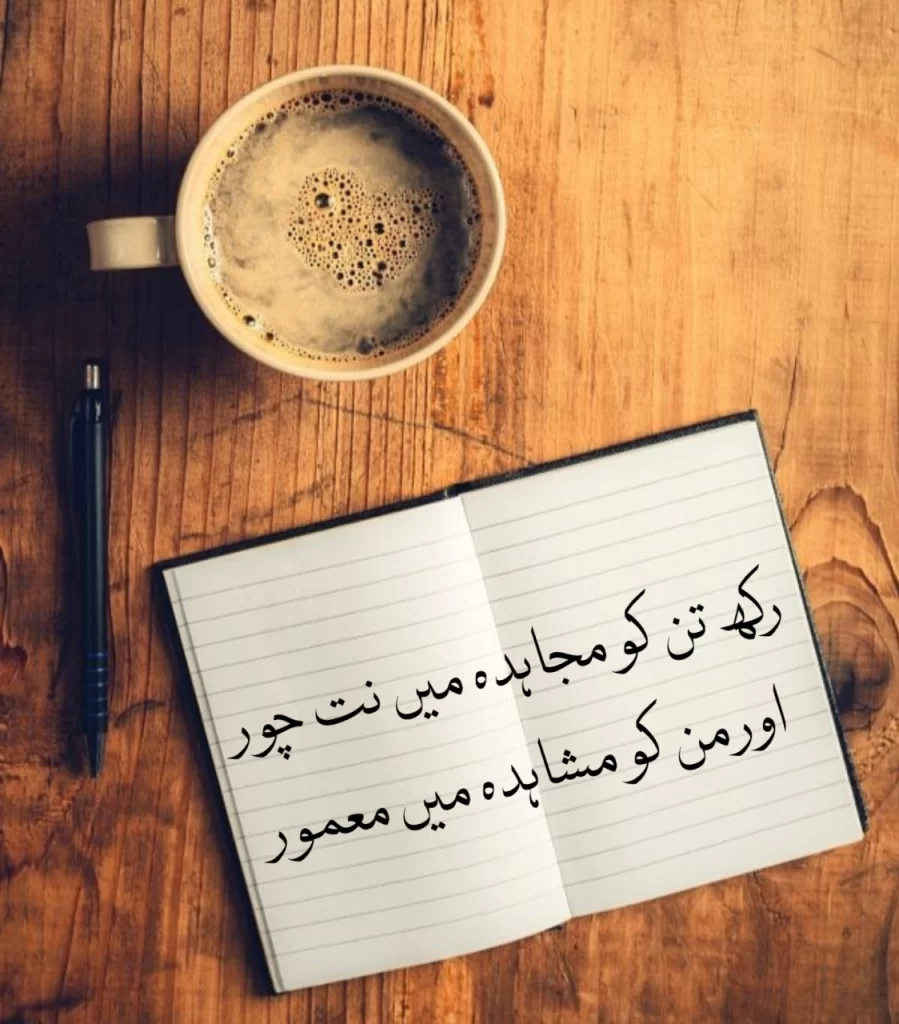 رکھ تن کو مجاہدہ میں نت چور
اور من کو مشاہدہ میں معمور